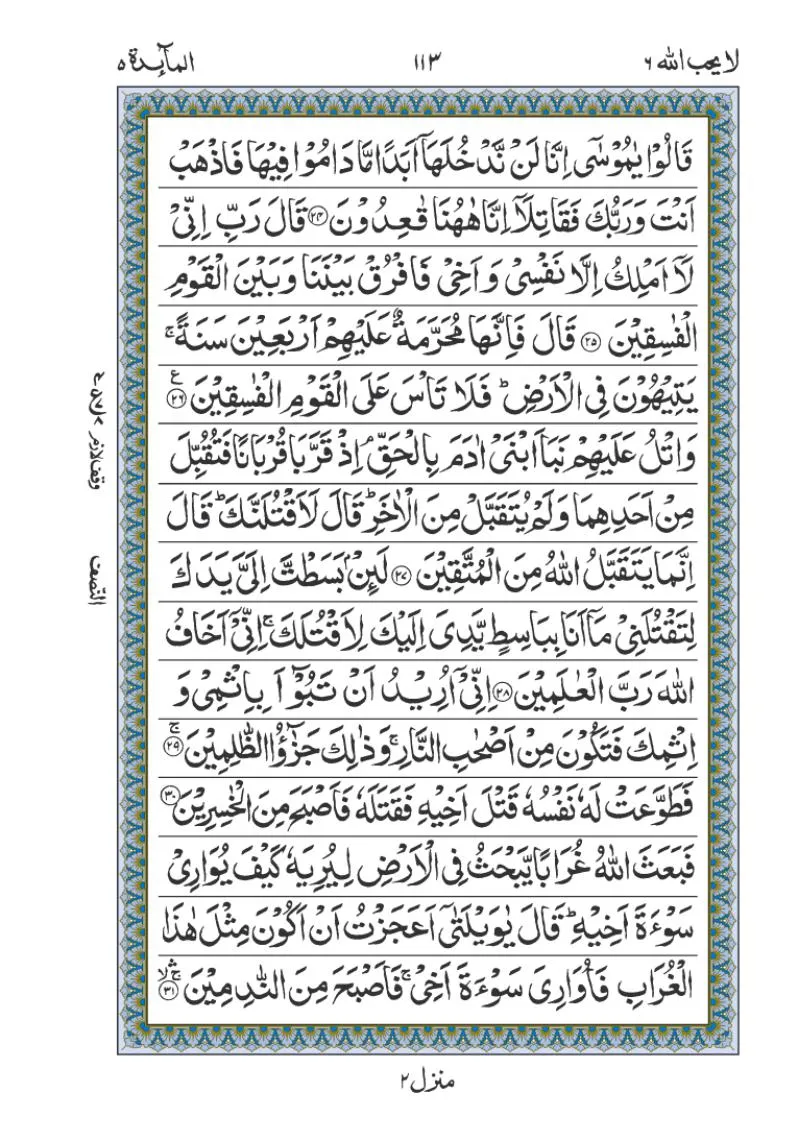 لا یحب الله ۶
۱۱۳
المآئدة ۵
قَالُوْا یٰمُوْسٰۤی اِنَّا لَنْ نَّدْخُلَهَاۤ اَبَدًا مَّا دَامُوْا فِیْهَا فَاذْهَبْ
اَنْتَ وَرَبُّكَ فَقَاتِلَاۤ اِنَّا هٰهُنَا قٰعِدُوْنَ ﴿۲۴﴾ قَالَ رَبِّ اِنِّیْ
لَاۤ اَمْلِكُ اِلَّا نَفْسِیْ وَ اَخِیْ فَافْرُقْ بَیْنَنَا وَ بَیْنَ الْقَوْمِ
الْفٰسِقِیْنَ ﴿۲۵﴾ قَالَ فَاِنَّهَا مُحَرَّمَةٌ عَلَیْهِمْ اَرْبَعِیْنَ سَنَةً ۚ
یَتِیْهُوْنَ فِی الْاَرْضِ ؕ فَلَا تَاْسَ عَلَی الْقَوْمِ الْفٰسِقِیْنَ ﴿۲۶﴾ ع
وَاتْلُ عَلَیْهِمْ نَبَاَ ابْنَیْ اٰدَمَ بِالْحَقِّ ۘ اِذْ قَرَّبَا قُرْبَانًا فَتُقُبِّلَ
مِنْ اَحَدِهِمَا وَلَمْ یُتَقَبَّلْ مِنَ الْاٰخَرِ ؕ قَالَ لَاَقْتُلَنَّكَ ؕ قَالَ
اِنَّمَا یَتَقَبَّلُ اللّٰهُ مِنَ الْمُتَّقِیْنَ ﴿۲۷﴾ لَئِنْۢ بَسَطْتَّ اِلَیَّ یَدَكَ
لِتَقْتُلَنِیْ مَاۤ اَنَا بِبَاسِطٍ یَّدِیَ اِلَیْكَ لِاَقْتُلَكَ ۚ اِنِّیْۤ اَخَافُ
اللّٰهَ رَبَّ الْعٰلَمِیْنَ ﴿۲۸﴾ اِنِّیْۤ اُرِیْدُ اَنْ تَبُوْٓاَ بِاِثْمِیْ وَ
اِثْمِكَ فَتَكُوْنَ مِنْ اَصْحٰبِ النَّارِ ۚ وَذٰلِكَ جَزٰٓؤُا الظّٰلِمِیْنَ ﴿۲۹﴾ ۚ
فَطَوَّعَتْ لَهٗ نَفْسُهٗ قَتْلَ اَخِیْهِ فَقَتَلَهٗ فَاَصْبَحَ مِنَ الْخٰسِرِیْنَ ﴿۳۰﴾
فَبَعَثَ اللّٰهُ غُرَابًا یَّبْحَثُ فِی الْاَرْضِ لِیُرِیَهٗ كَیْفَ یُوَارِیْ
سَوْءَةَ اَخِیْهِ ؕ قَالَ یٰوَیْلَتٰۤی اَعَجَزْتُ اَنْ اَكُوْنَ مِثْلَ هٰذَا
الْغُرَابِ فَاُوَارِیَ سَوْءَةَ اَخِیْ ۚ فَاَصْبَحَ مِنَ النّٰدِمِیْنَ ﴿۳۱﴾ ۚۙۛ
وقف لازم
النّصف
منزل ۲